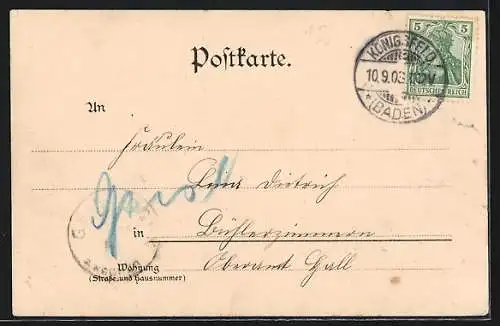 Postkarte.
5 5
DEUTSCHES REICH
KÖNIGSFELD
10.9.03.
(BADEN)
An
Fräulein
Dietrich
in Bühlerzimmern
Oberamt Hall
Wohnung
(Straße und Hausnummer)